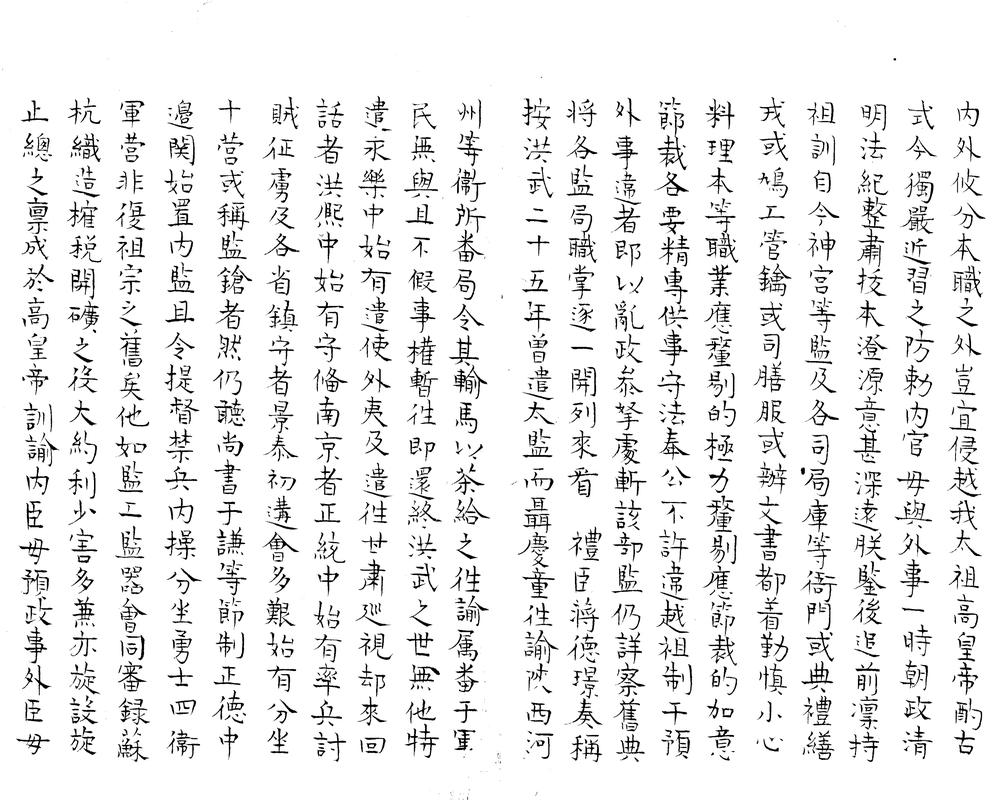 内外攸分本職之外豈宜侵越我太祖高皇帝酌古
式今獨嚴近習之防勅内官毋與外事一時朝政清
明法紀整肅拔本澄源意甚深遠朕鑒後追前凜持
祖訓自今神宮等監及各司局庫等衙門或典禮繕
戎或鳩工管鑰或司膳服或辦文書都着勤慎小心
料理本等職業應釐剔的極力釐剔應節裁的加意
節裁各要精專供事守法奉公不許違越祖制干預
外事違者即以亂政叅拏處斬該部監仍詳察舊典
将各監局職掌逐一開列來看　禮臣蔣德璟奏稱
按洪武二十五年曾遣太監而聶慶童徃諭陜西河
州等衞所番局令其輸馬以茶給之徃諭属番于軍
民無與且不假事權暫徃即還終洪武之世無他特
遣永樂中始有遣使外夷及遣徃甘肅廵視却來回
話者洪熙中始有守俻南京者正統中始有率兵討
賊征虜及各省鎮守者景泰初遘會多艱始有分坐
十營或稱監鎗者然仍聽尚書于謙等節制正德中
邉関始置内監且令提督禁兵内操分坐勇士四衞
軍營非復祖宗之舊矣他如監工監噐會同審録蘇
杭織造榷税開礦之役大約利少害多兼亦旋設旋
止總之禀成於高皇帝訓諭内臣毋預政事外臣毋